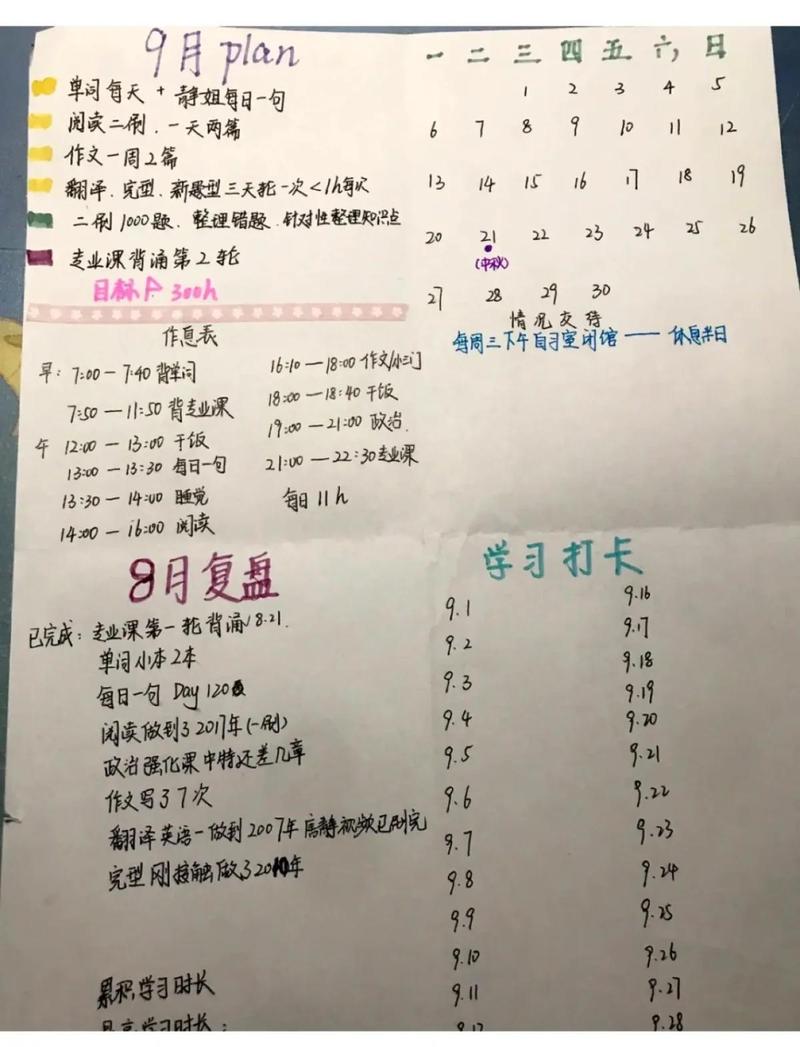 9月 plan
单词每天 + 静姐每日一句
阅读二刷、一天两篇
作文一周2篇
翻译、完型、新题型三天轮一次<1h每次
二刷1000题、整理错题、针对性整理知识点
专业课背诵第2轮
目标 300h
一 二 三 四 五 六 日
1 2 3 4 5
6 7 8 9 10 11 12
13 14 15 16 17 18 19
20 21 22 23 24 25 26
(中秋)
27 28 29 30
情况交待
每周三下午自习室闭馆——休息半日
作息表
早: 7:00—7:40 背单词
7:50—11:50 背专业课
午 12:00—13:00 干饭
13:00—13:30 每日一句
13:30—14:00 睡觉
14:00—16:00 阅读
16:10—18:00 作文/小三门
18:00—18:40 干饭
19:00—21:00 政治.
21:00—22:30专业课
每日11h
8月复盘
已完成: 专业课第一轮背诵18.21.
单词小本2本
每日一句 Day 120
阅读做到了2017年(一刷)
政治强化课中特还差几章
作文写了7次
翻译英语一做到2007年 唐静视频已刷完
完型刚接触做了2010年
累积学习时长
最高学习时长:
学习打卡
9.1
9.2
9.3
9.4
9.5
9.6
9.7
9.8
9.9
9.10
9.11
9.12
9.16
9.17
9.18
9.19
9.20
9.21
9.22
9.23
9.24
9.25
9.26
9.27
9.28